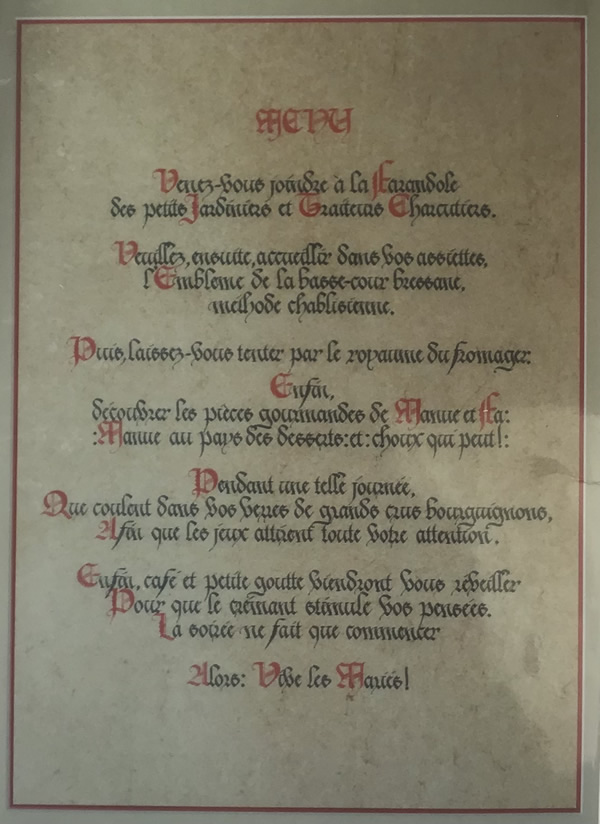 MENU
Venez-vous joindre à la Farandole
des petits Jardiniers et Traiteurs Charcutiers.
Veuillez, ensuite, accueillir dans vos assiettes,
l'Embleme de la basse-cour bressane,
méthode chablisienne.
Puis, laissez-vous tenter par le royaume du fromager.
Enfin,
découvrer les pièces gourmandes de Manue et Fa:
:Manue au pays des desserts:et:choux qui peut!:
Pendant une telle journée,
Que coulent dans vos verres de grands crus bourguignons,
Afin que les jeux attirent toute votre attention.
Enfin, café et petite goutte viendront vous réveiller
Pour que le crémant stimule vos pensées.
La soirée ne fait que commencer
Alors: Vive les Mariés!